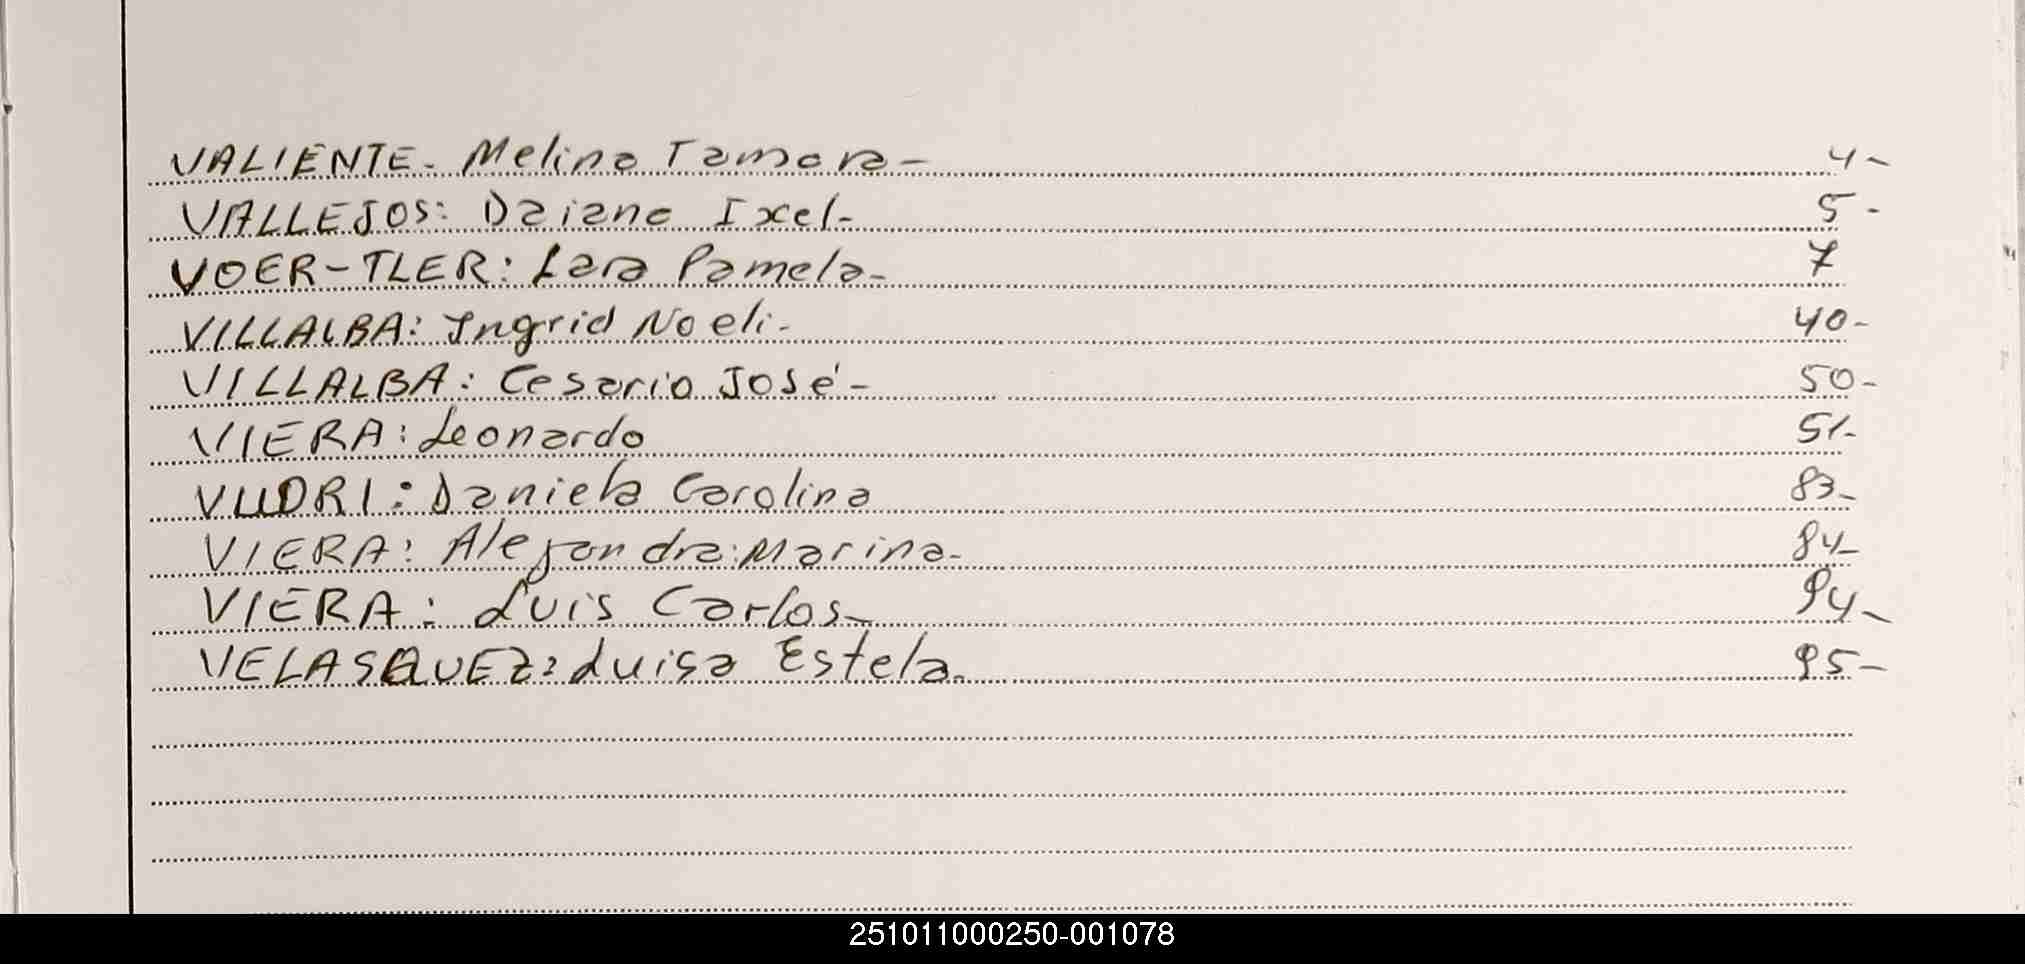 VALIENTE- Melina Tamara- 4-
VALLEJOS: Daiana Ixel- 5-
VOER-TLER: Lara Pamela- 7
VILLALBA: Ingrid Noeli- 40-
VILLALBA: Cesario José- 50-
VIERA: Leonardo 51-
VUDRI: Daniela Carolina 83-
VIERA: Alejandra: Marina- 84-
VIERA: Luis Carlos- 94-
VELASQUEZ: Luisa Estela. 95-
251011000250-001078